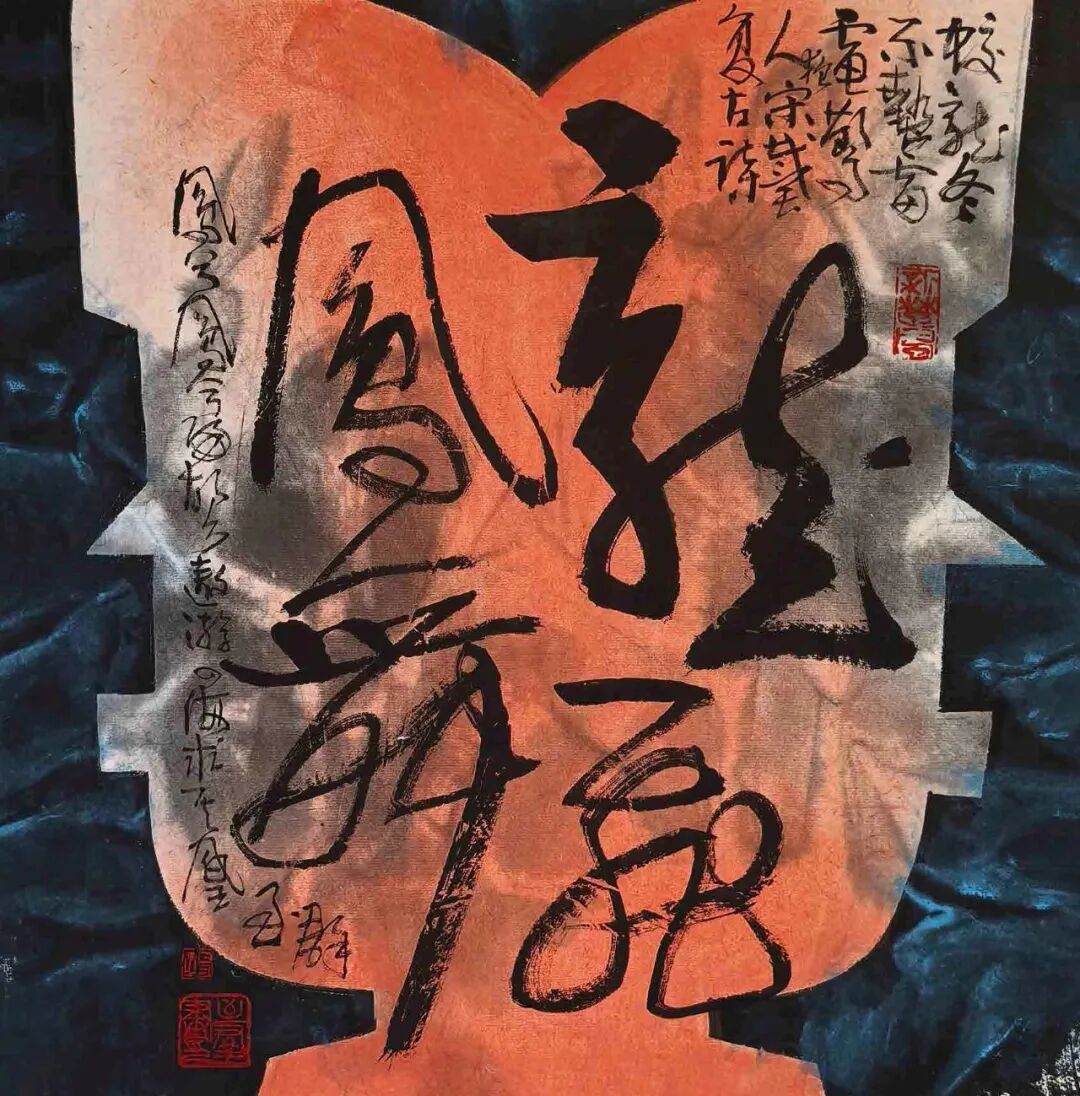 龍飛
鳳舞
蛟龍冬
不蟄雷
電驚
人宋戴
復古詩
鳳兮鳳兮歸故鄉遨遊四海求其凰